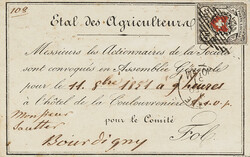 108
Etal des Agriculteurs
Messieurs les Actionnaires de la Société
sont convoqués en Assemblée Générale
pour le 11. 8bre 1851 à 9 heures
à l'hôtel de la Coulouvrenière
Monsieur
pour le Comité
Sautter
Bourdigny Fol.